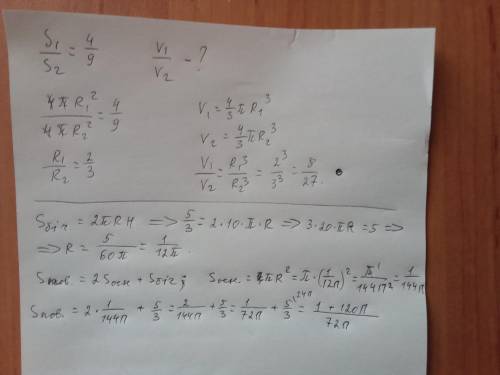 S₁/S₂ = 4/9    V₁/V₂ - ?
4πR₁²/4πR₂² = 4/9    V₁ = 4/3 πR₁³
V₂ = 4/3 πR₂³
R₁/R₂ = 2/3    V₁/V₂ = R₁³/R₂³ = 2³/3³ = 8/27.
Sбіч = 2πRH => 5/3 = 2·10·π·R => 3·20πR = 5 =>
=> R = 5/60π = 1/12π.
Sпов. = 2Sосн + Sбіг; Sосн. = πR² = π·(1/12π)² = π¹/144π² = 1/144π
Sпов. = 2·1/144π + 5/3 = 2/144π + 5/3 = 1/72π + 5/3^24π = 1+120π/72π